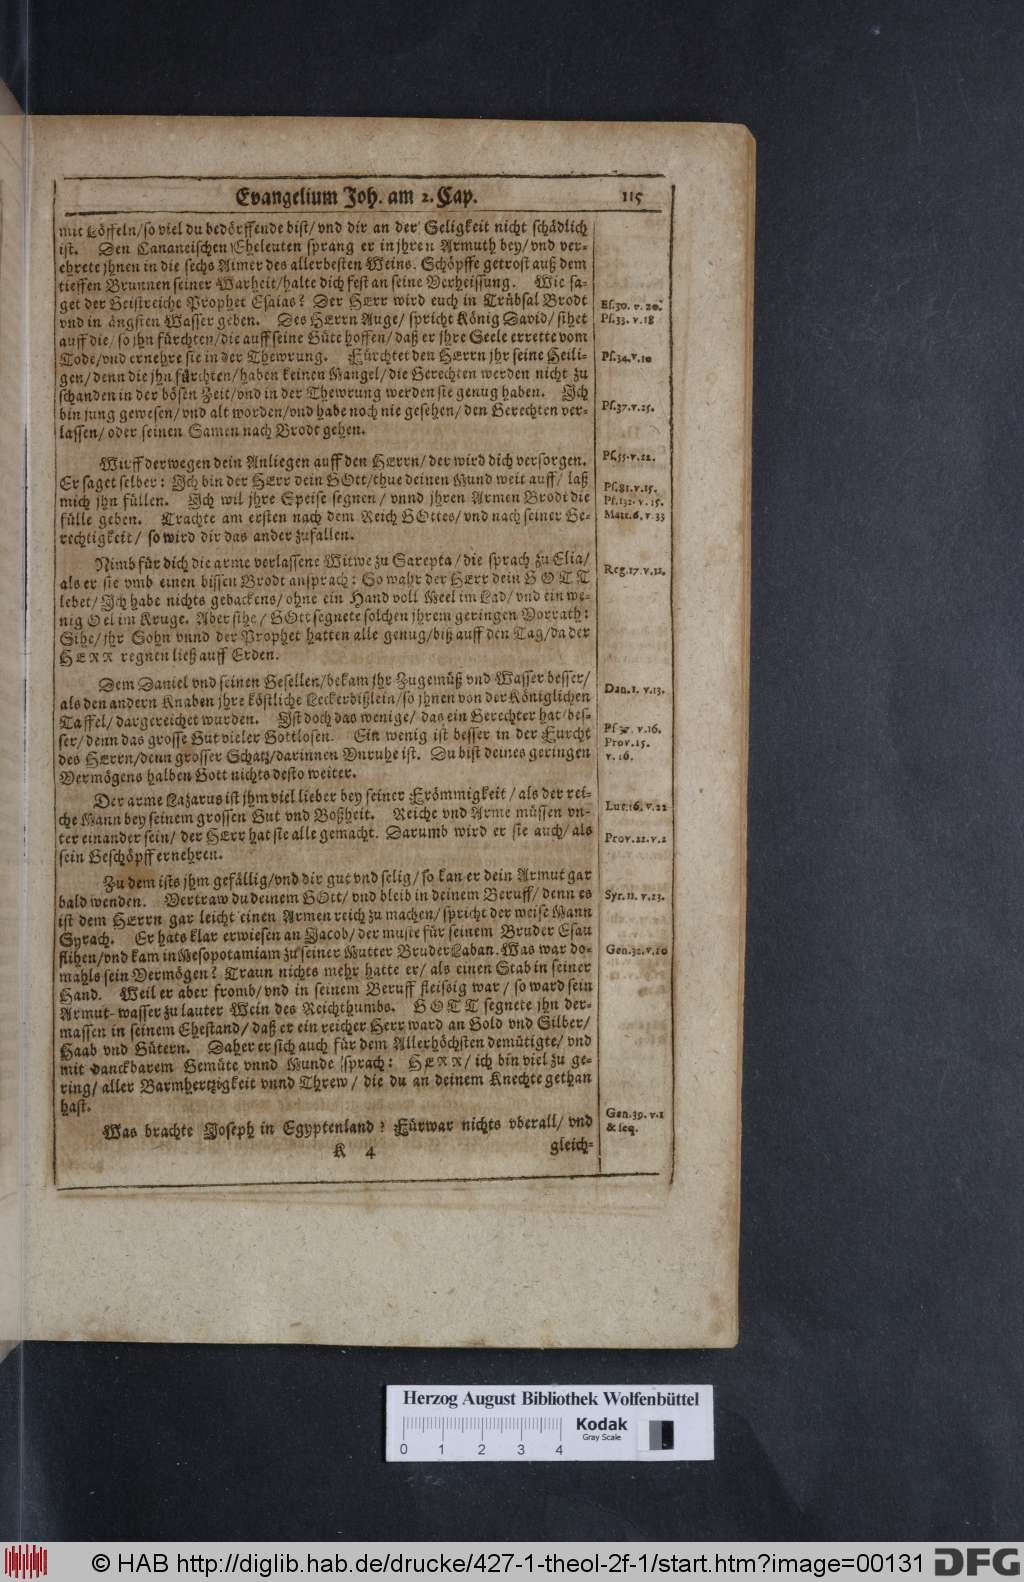 Evangelium Joh. am 2. Cap. 115
mit Löffeln/so viel du bedörffende bist/vnd dir an der Seligkeit nicht schädlich
ist. Den Cananeischen Eheleuten sprang er in jhren Armuth bey/vnd ver-
ehrete jhnen in die sechs Aimer des allerbesten Weins. Schöpffe getrost auß dem
tieffen Brunnen seiner Warheit/halte dich fest an seine Verheissung. Wie sa-
get der Geistreiche Prophet Esaias? Der HErr wird euch in Trübsal Brodt
vnd in ängsten Wasser geben. Des HErrn Auge/ spricht König David/ sihet
auff die/ so jhn fürchten/die auff seine Güte hoffen/ daß er jhre Seele errette vom
Tode/vnd ernehre sie in der Thewrung. Fürchtet den HErrn jhr seine Heili-
gen/denn die jhn fürchten/haben keinen Mangel/die Gerechten werden nicht zu
schanden in der bösen Zeit/vnd in der Thewrung werden sie genug haben. Ich
bin jung gewesen/vnd alt worden/vnd habe noch nie gesehen/den Gerechten ver-
lassen/ oder seinen Samen nach Brodt gehen.
Wirff derwegen dein Anliegen auff den HErrn/der wird dich versorgen.
Er saget selber: Ich bin der HErr dein GOtt/thue deinen Mund weit auff/ laß
mich jhn füllen. Ich wil jhre Speise segnen/ vnnd jhren Armen Brodt die
fülle geben. Trachte am ersten nach dem Reich GOttes/vnd nach seiner Ge-
rechtigkeit/ so wird dir das ander zufallen.
Nimb für dich die arme verlassene Witwe zu Sarepta/die sprach zu Elia/
als er sie vmb einen bissen Brodt ansprach: So wahr der HErr dein GOTT
lebet/Ich habe nichts gebackens/ohne ein Hand voll Meel im Lad/vnd ein we-
nig Oel im Kruge. Aber sihe/ GOtt segnete solchen jhrem geringen Vorrath:
Sihe/jhr Sohn vnnd der Prophet hatten alle genug/biß auff den Tag/da der
HERR regnen ließ auff Erden.
Dem Daniel vnd seinen Gesellen/bekam jhr Zugemüß vnd Wasser besser/
als den andern Knaben jhre köstliche Leckerbißlein/so jhnen von der Königlichen
Taffel/dargereichet wurden. Ist doch das wenige/ das ein Gerechter hat/bes-
ser/denn das grosse Gut vieler Gottlosen. Ein wenig ist besser in der Furcht
des HErrn/denn grosser Schatz/darinnen Vnruhe ist. Du bist deines geringen
Vermögens halben Gott nichts desto weiter.
Der arme Lazarus ist jhm viel lieber bey seiner Frömmigkeit/als der rei-
che Mann bey seinem grossen Gut vnd Boßheit. Reiche vnd Arme müssen vn-
ter einander sein/ der HErr hat sie alle gemacht. Darumb wird er sie auch/als
sein Geschöpff ernehren.
Zu dem ists jhm gefällig/vnd dir gut vnd selig/ so kan er dein Armut gar
bald wenden. Vertraw du deinem GOtt/ vnd bleib in deinem Beruff/ denn es
ist dem HErrn gar leicht einen Armen reich zu machen/ spricht der weise Mann
Syrach. Er hats klar erwiesen an Jacob/der muste für seinem Bruder Esau
flihen/vnd kam in Mesopotamiam zu seiner Mutter Bruder Laban. Was war do-
mahls sein Vermögen? Traun nichts mehr hatte er/ als einen Stab in seiner
Hand. Weil er aber fromb/vnd in seinem Beruff fleissig war/ so ward sein
Armut-wasser zu lauter Wein des Reichthumbs. GOTT segnete jhn der-
massen in seinem Ehestand/ daß er ein reicher Herr ward an Gold vnd Silber/
Haab vnd Gütern. Daher er sich auch für dem Allerhöchsten demütigte/ vnd
mit danckbarem Gemüte vnnd Munde sprach: HERR/ ich bin viel zu ge-
ring/ aller Barmhertzigkeit vnnd Threw/ die du an deinem Knechte gethan
hast.
Was brachte Joseph in Egyptenland? Fürwar nichts vberall/ vnd
K 4 gleich-
Es.30. v. 20.
Ps.33. v.18
Ps.34.v.10
Ps.37.v.25.
Ps.55.v.22.
Ps.81.v.15.
Ps.132. v. 15.
Matt.6. v. 33
Reg.17.v.12.
Dan. 1. v.13.
Ps 37. v.16.
Prov.15.
v. 16.
Luc.16. v.22
Prov.22.v.2
Syr.11. v.23.
Gen.32.v.10
Gen.39. v.1
& seq.
Herzog August Bibliothek Wolfenbüttel
0 1 2 3 4
Kodak
Gray Scale
© HAB http://diglib.hab.de/drucke/427-1-theol-2f-1/start.htm?image=00131
DFG